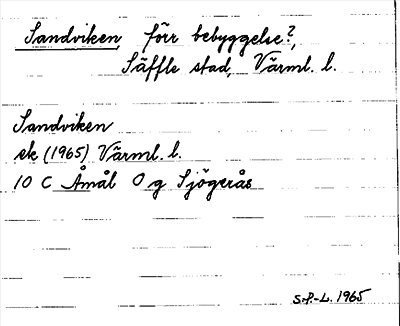 Sandviken, förr bebyggelse?,
Säffle stad, Värml. l.
Sandviken
ek (1965) Värml. l.
10 C Åmål O g Sjögerås
S.P.-L. 1965